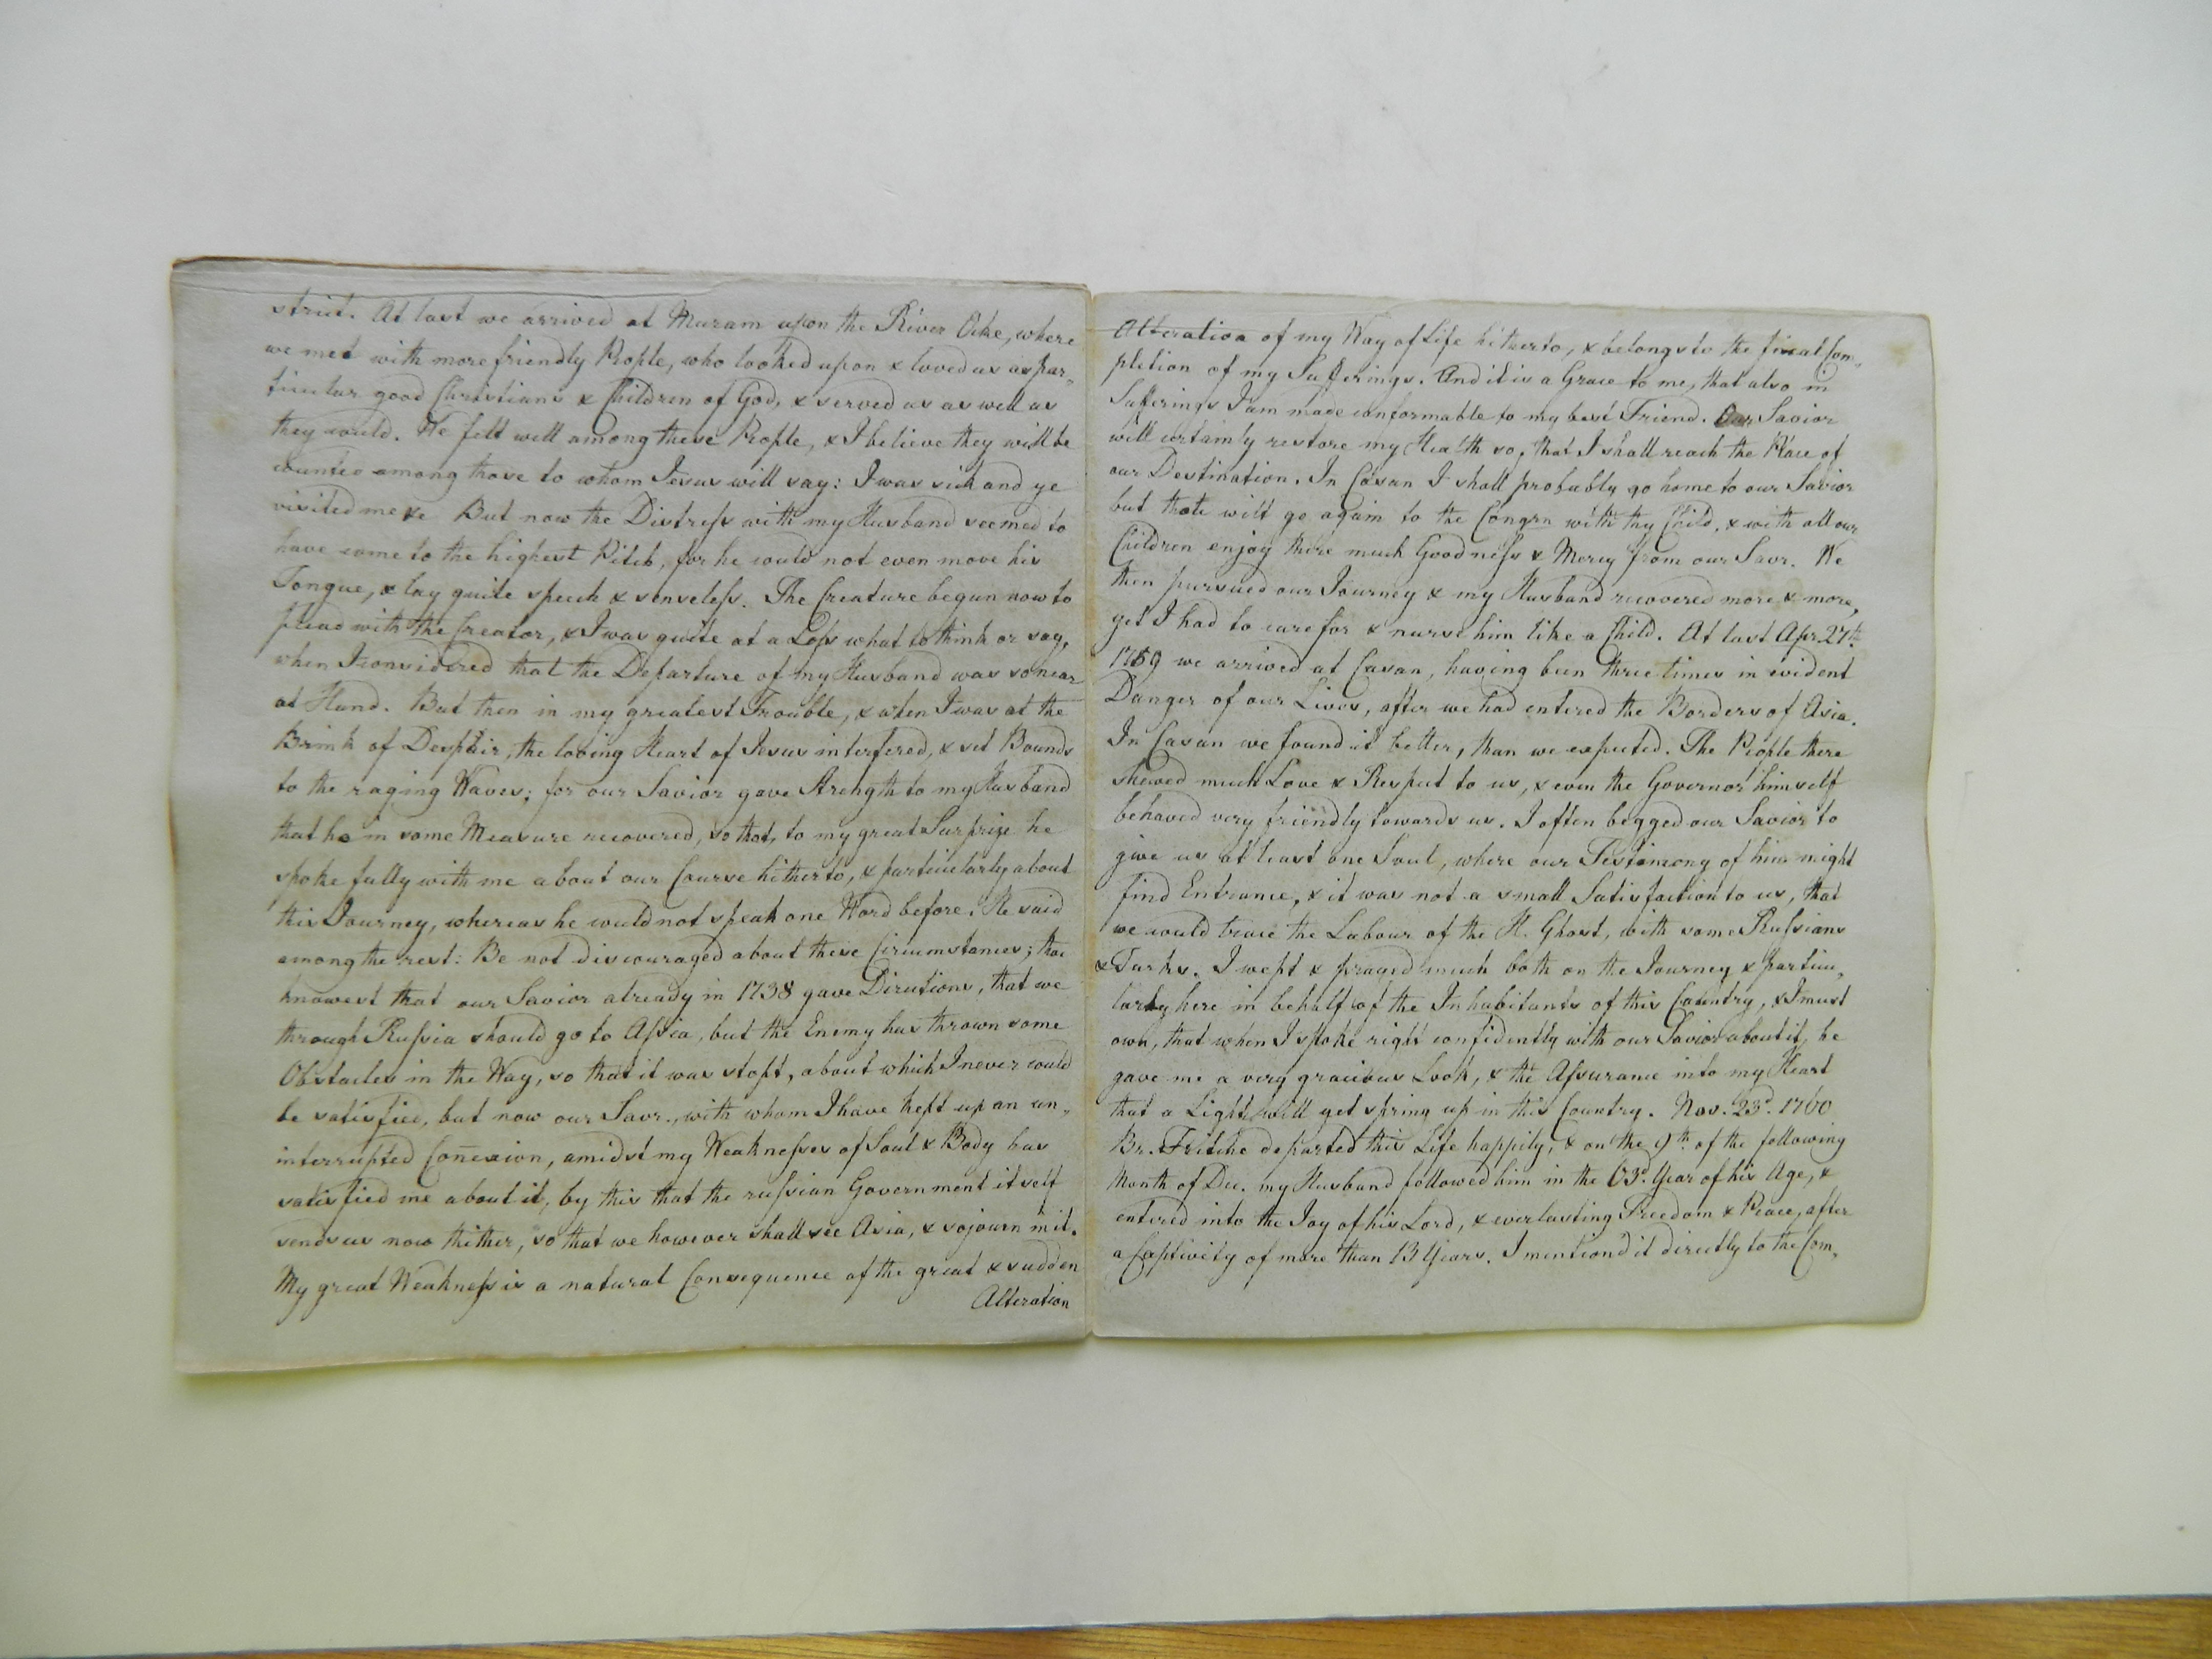 strict. At last we arrived at Muram upon the River Ocke, where
we met with more friendly People, who looked upon & loved us as par„
ticular good Christians & Children of God, & served us as well as
they could. We felt well among these People, & I believe they will be
counted among those to whom Jesus will say: I was sick and ye
visited me &c But now the Distress with my Husband seemed to
have come to the highest Pitch, for he could not even move his
Tongue, & lay quite speech & senseless. The Creature begun now to
plead with the Creator, & I was quite at a Loss what to think or say,
when I considered that the Departure of my Husband was so near
at Hand. But then in my greatest Trouble, & when I was at the
Brink of Despair, the loving Heart of Jesus interfered, & set Bounds
to the raging Waves; for our Savior gave Strength to my Husband
that he in some Measure recovered, so that, to my great Surprize he
spoke fully with me about our Course hitherto, & particularly about
this Journey, whereas he could not speak one Word before. He said
among the rest: Be not discouraged about these Circumstances; thou
knowest that our Savior already in 1738 gave Directions, that we
through Russia should go to Assia, but the Enemy has thrown some
Obstacles in the Way, so that it was stopt, about which I never could
be satisfied, but now our Savr., with whom I have kept up an un„
interrupted Coñexion, amidst my Weaknesses of Soul & Body has
satisfied me about it, by this that the russian Government itself
sends us now thither, so that we however shall see Asia, & sojourn in it.
My great Weakness is a natural Consequence of the great & sudden
Alteration
Alteration of my Way of Life hitherto, & belongs to the final Com„
pletion of my Sufferings. And it is a Grace to me, that also in
Sufferings I am made conformable to my best Friend. Our Savior
will certainly restore my Health so, that I shall reach the Place of
our Destination. In Casan I shall probably go home to our Savior
but thou wilt go again to the Congrn with thy Child, & with all our
Children enjoy there much Goodness & Mercy from our Savr. We
then pursued our Journey & my Husband recovered more & more,
yet I had to care for & nurse him like a Child. At last Apr. 27th.
1759 we arrived at Casan, having been three times in evident
Danger of our Lives, after we had entered the Borders of Asia.
In Casan we found it better, than we expected. The People there
shewed much Love & Respect to us, & even the Governor himself
behaved very friendly towards us. I often begged our Savior to
give us at least one Soul, where our Testimony of him might
find Entrance, & it was not a small Satisfaction to us, that
we could trace the Labour of the H. Ghost, with some Russians
& Turks. I wept & prayed much both on the Journey & particu„
larly here in behalf of the Inhabitants of this Country, & I must
own, that when I spoke right confidently with our Savior about it, he
gave me a very gracious Look, & the Assurance into my Heart
that a Light will yet spring up in this Country. Nov. 23d. 1760
Br. Fritche departed this Life happily, & on the 9th. of the following
Month of Dec. my Husband followed him in the 63d. Year of his Age, &
entered into the Joy of his Lord, & everlasting Freedom & Peace, after
a Captivity of more than 13 Years. I mention'd it directly to the Com„